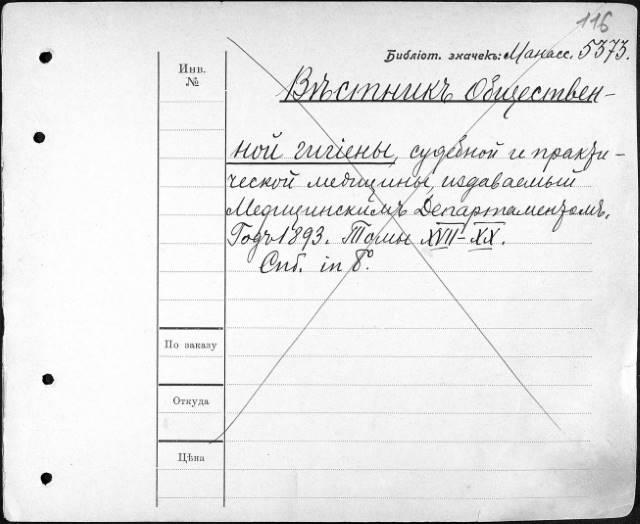 116
Библіот. значекъ: Манасс. 5373.
Инв.
№
Вѣстникъ Обществен-
ной гигіены, судебной и практи-
ческой медицины, издаваемый
Медицинскимъ Департаментомъ.
Годъ 1893. Томы XVII-XX.
Спб. in 8º.
По заказу
Откуда
Цѣна